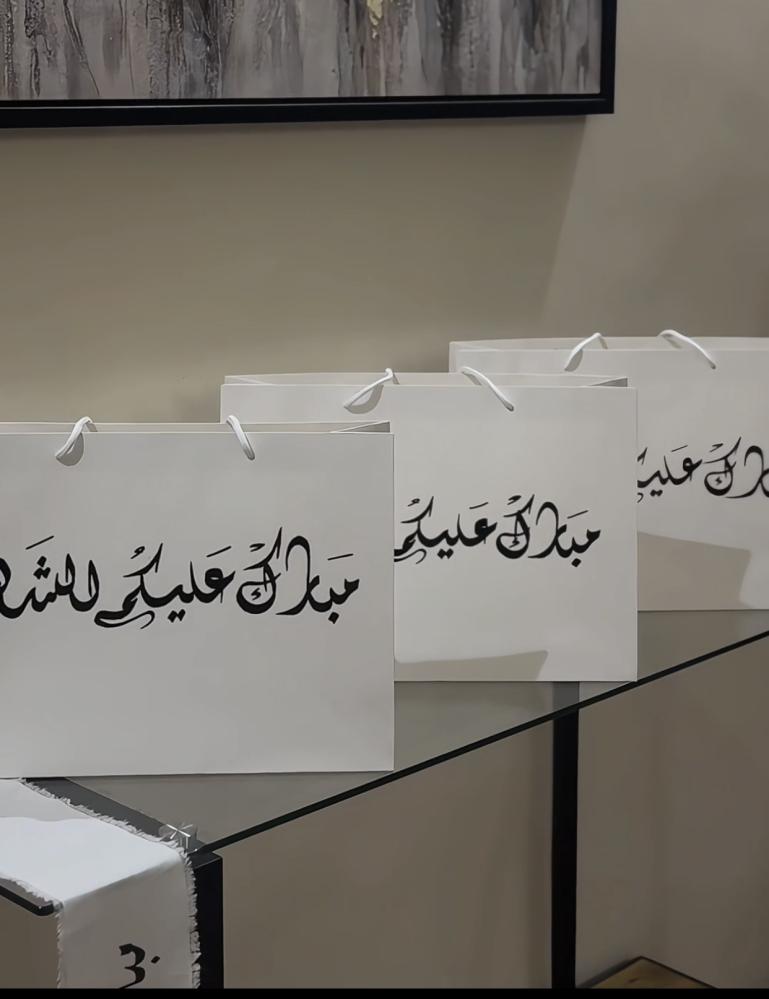 مبارك عليكم الشـ
مبارك عليكم
مبارك عليـ